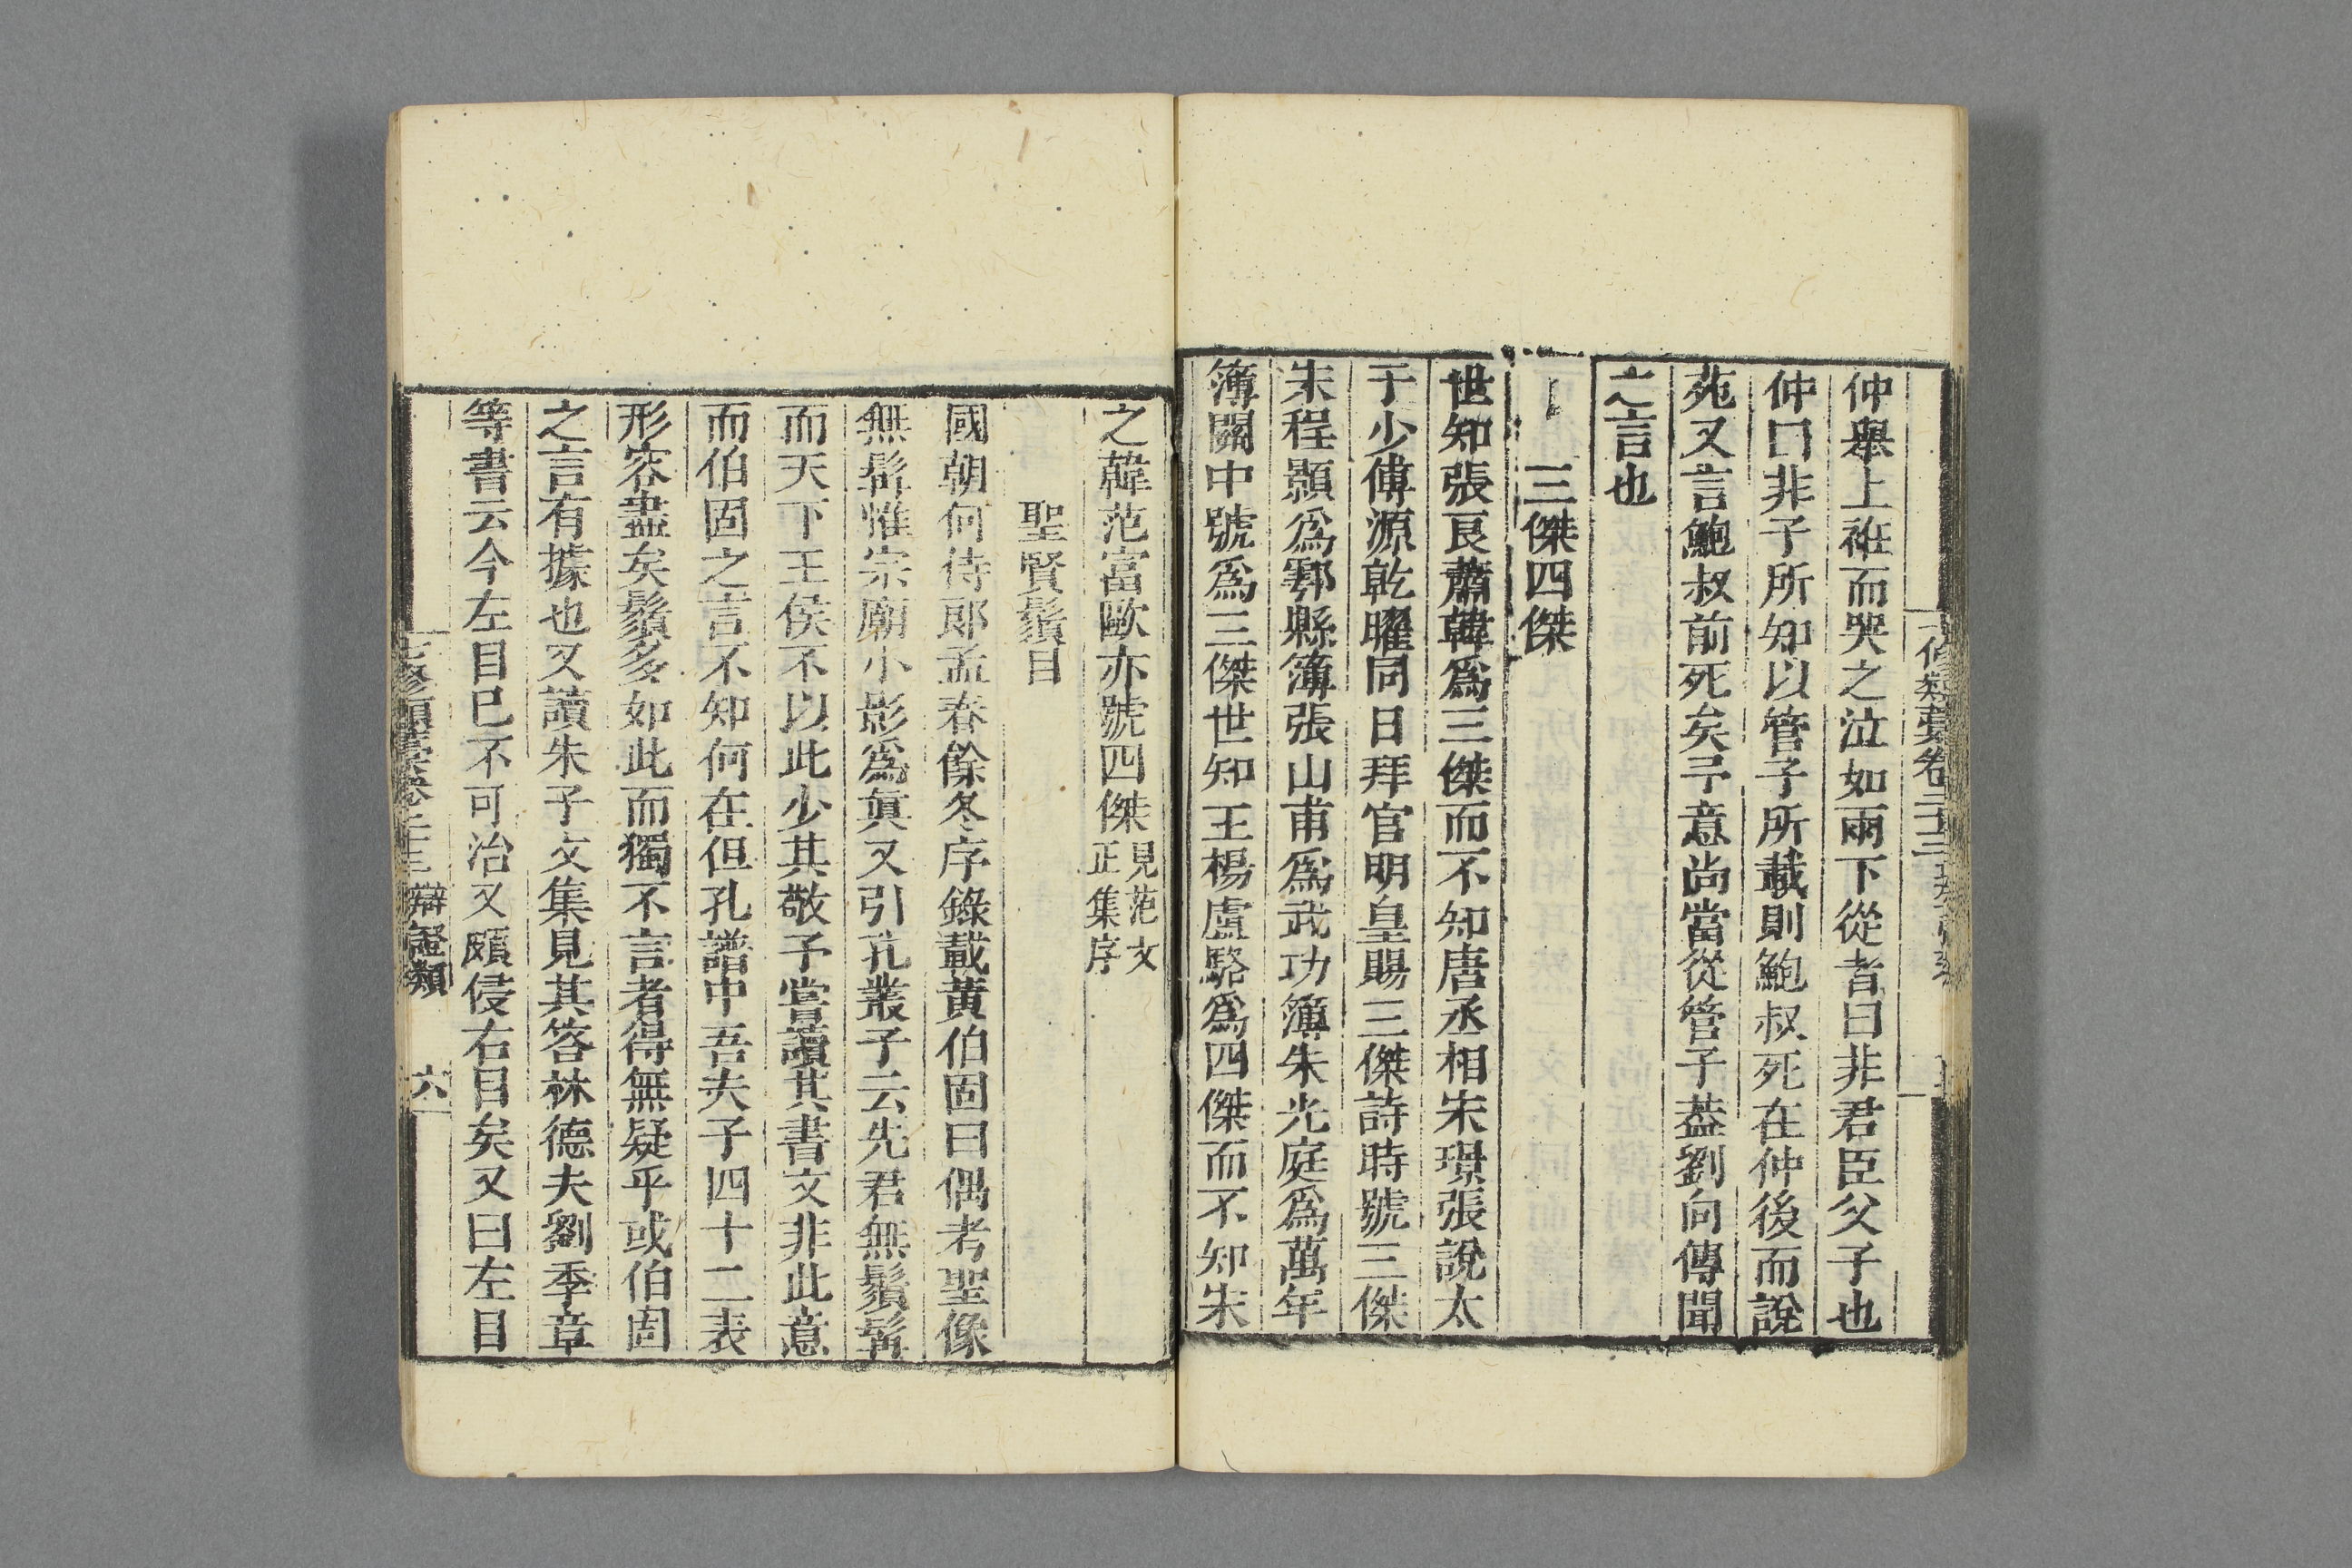 仲舉上袵而哭之泣如雨下從者曰非君臣父子也
仲曰非子所知以管子所載則鮑叔死在仲後而說
苑又言鮑叔前死矣予意尚當從管子葢劉向傳聞
之言也
三傑四傑
世知張良蕭韓爲三傑而不知唐丞相宋璟張說太
子少傅源乾曜同日拜官明皇賜三傑詩時號三傑
宋程顥爲鄠縣簿張山甫爲武功簿朱光庭爲萬年
簿關中號爲三傑世知王楊盧駱爲四傑而不知宋
之韓范富歐亦號四傑見范文
正集序
聖賢鬚目
國朝何侍郎孟春餘冬序錄載黃伯固曰偶考聖像
無髯惟宗廟小影爲眞又引孔叢子云先君無鬚髯
而天下王侯不以此少其敬予嘗讀其書文非此意
而伯固之言不知何在但孔譜中吾夫子四十二表
形容盡矣鬚多如此而獨不言者得無疑乎或伯固
之言有據也又讀朱子文集見其答林德夫劉季章
等書云今左目已不可治又頗侵右目矣又曰左目
七修類藁卷二十三 辯證類 六